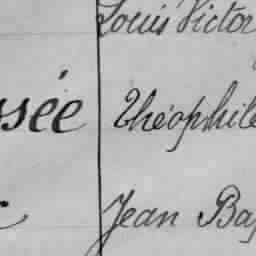 Louis Victor
ssée Théophile
Jean Bap